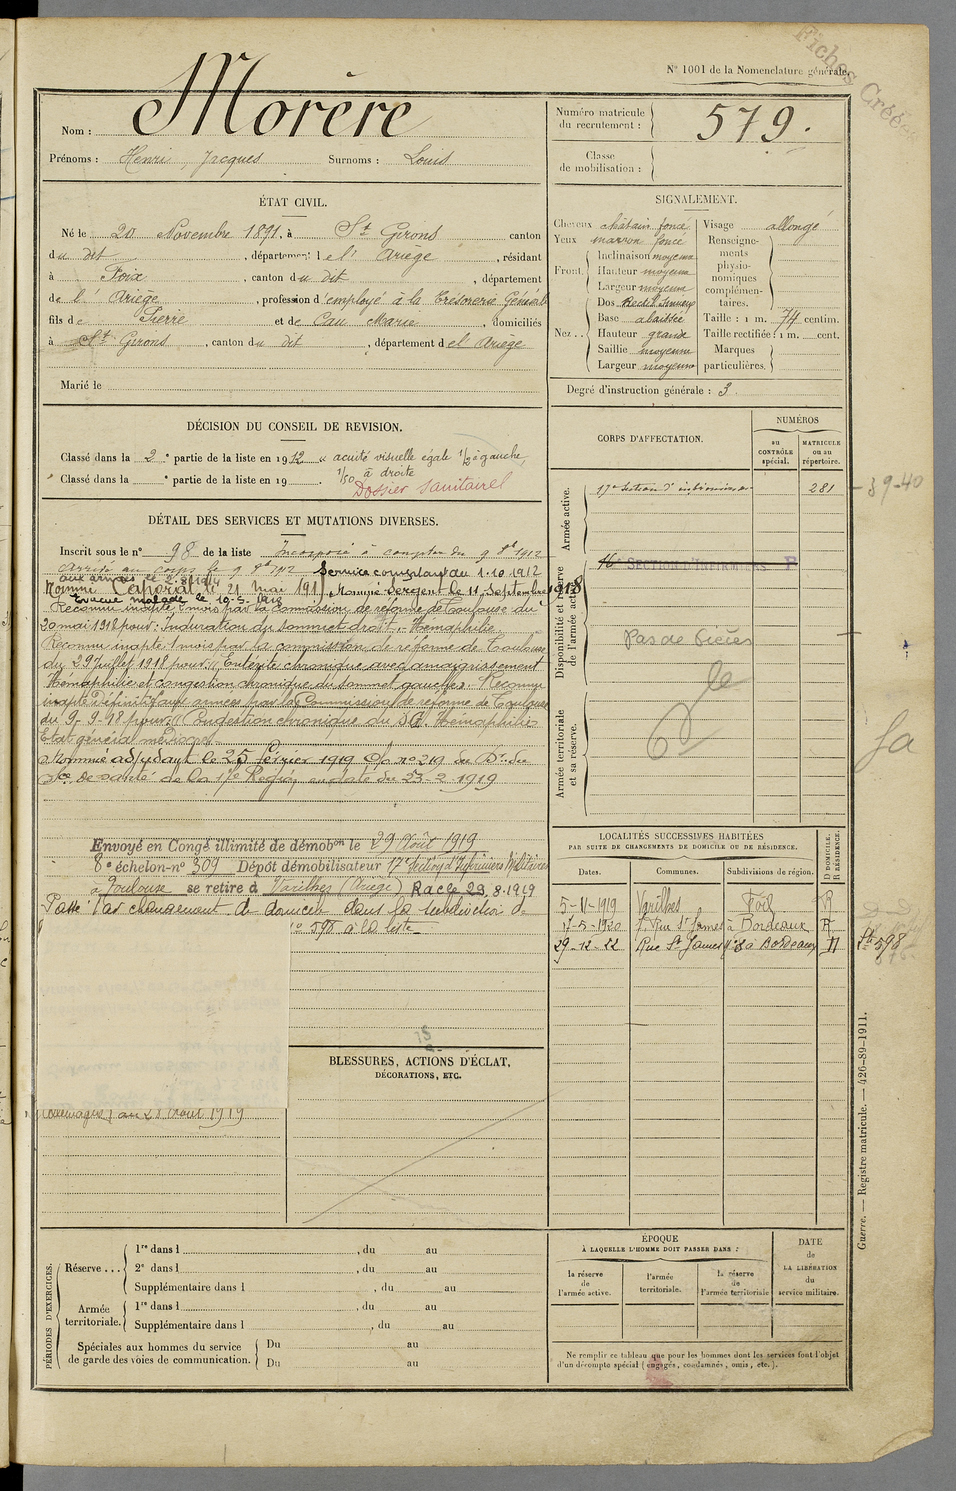 Fiches Créées
N° 1001 de la Nomenclature générale.
Nom : Morère
Prénoms : Henri, Jacques Surnoms : Louis
Numéro matricule du recrutement : 579.
Classe de mobilisation :
ÉTAT CIVIL.
Né le 20 Novembre 1891, à St Girons canton
du dit, département de l'Ariège, résidant
à Foix, canton du dit, département
de l'Ariège, profession d'employé à la Trésorerie Générale
fils de Pierre et de Cau Marie, domiciliés
à St Girons, canton du dit, département de l'Ariège
Marié le
SIGNALEMENT.
Cheveux châtain foncé
Yeux marron foncé
Front Inclinaison moyenne
Hauteur moyenne
Largeur moyenne
Nez Dos Rectil. Sinueux
Base abaissée
Hauteur grande
Saillie moyenne
Largeur moyenne
Visage allongé
Renseignements physionomiques complémentaires.
Taille : 1 m. 74 centim.
Taille rectifiée : 1 m. cent.
Marques particulières.
Degré d'instruction générale : 3
DÉCISION DU CONSEIL DE REVISION.
Classé dans la 2e partie de la liste en 1912 « acuité visuelle égale 1/2 à gauche,
1/50 à droite
Classé dans la e partie de la liste en 19 .
Dossier sanitaire
DÉTAIL DES SERVICES ET MUTATIONS DIVERSES.
Inscrit sous le n° 98 de la liste Incorporé à compter du 9 8bre 1912
Arrivé au corps le 9 8bre 1912 Service comptant du 1-10-1912
aux armées le 2-8-1914
Nommé Caporal le 21 Mai 191 Nommé Sergent le 11 Septembre 1918
Evacué malade le 19-5-1918
Reconnu inapte 1 mois par la commission de réforme de Toulouse du
20 mai 1918 pour : Induration du sommet droit. Hémophilie.
Reconnu inapte 1 mois par la commission de réforme de Toulouse
du 29 Juillet 1918 pour : Entérite chronique avec amaigrissement
Hémophilie et congestion chronique du sommet gauche. Reconnu
inapte Définitif aux armées par la Commission de réforme de Toulouse
du 9-9-18 pour : Congestion chronique du S.G. Hémophilie
Etat général médiocre
Nommé adjudant le 25 février 1919 O/ n° 219 du Dr du
Sce de santé de la 17e Région en date du 23-2-1919
Envoyé en Congé illimité de démobon le 29 Août 1919
8e échelon-n° 309 Dépôt démobilisateur 17e Section d'Infirmiers Militaires
à Toulouse se retire à Varilhes (Ariège) Racle 29.8.1919
Passé par changement de domicile dans la subdivision de
n° 598 à la liste
au 28 Août 1919
BLESSURES, ACTIONS D'ÉCLAT,
DÉCORATIONS, ETC.
CORPS D'AFFECTATION.
NUMÉROS
au CONTRÔLE spécial.
MATRICULE ou au répertoire.
Armée active.
17e Section d'infirmiers 281
39-40
Disponibilité et réserve de l'armée active.
16e SECTION D'INFIRMIERS
Pas de Pièces
Armée territoriale et sa réserve.
LOCALITÉS SUCCESSIVES HABITÉES
PAR SUITE DE CHANGEMENTS DE DOMICILE OU DE RÉSIDENCE.
Dates. Communes. Subdivisions de région. D DOMICILE. R RÉSIDENCE.
5-11-1919 Varilhes Foix R
17-5-1920 7, Rue St James à Bordeaux R
29-12-22 Rue St James n° 8 à Bordeaux D
St 598
PÉRIODES D'EXERCICES.
Réserve ... 1re dans l , du au
2e dans l , du au
Supplémentaire dans l , du au
Armée territoriale. 1re dans l , du au
Supplémentaire dans l , du au
Spéciales aux hommes du service de garde des voies de communication. Du au
Du au
ÉPOQUE
À LAQUELLE L'HOMME DOIT PASSER DANS :
la réserve de l'armée active.
l'armée territoriale.
la réserve de l'armée territoriale
DATE de LA LIBÉRATION du service militaire.
Ne remplir ce tableau que pour les hommes dont les services font l'objet
d'un décompte spécial (engagés, condamnés, omis, etc.).
Guerre. — Registre matricule. — 426-89-1911.